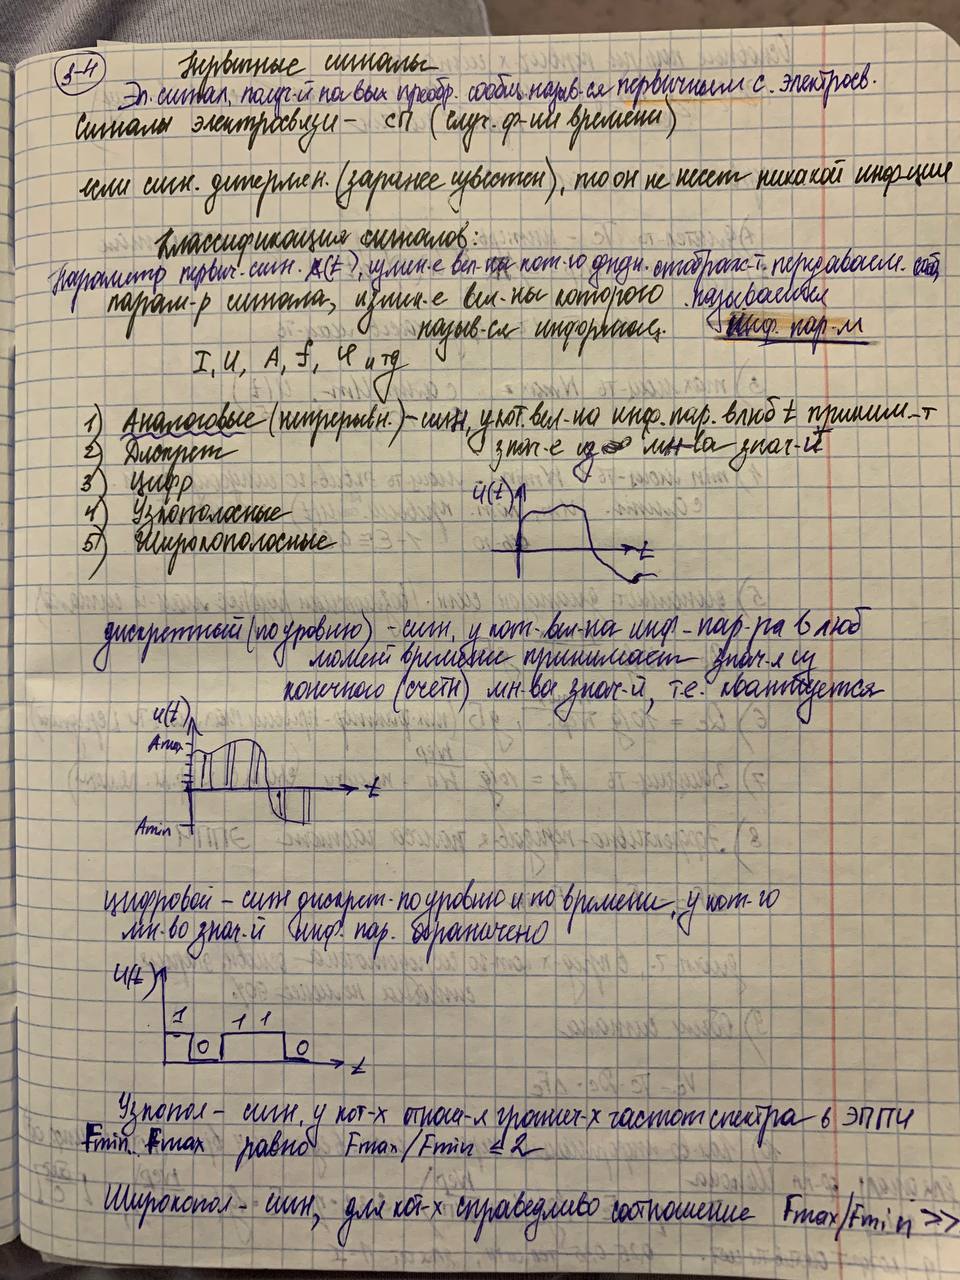 3-4
Первичные сигналы
Эл. сигнал, получ-й на вых преобр. сообщ назыв-ся первичным с. электросв.
Сигналы электросвязи - СП (случ. ф-ии времени)
если сигн. детермен. (заранее известен), то он не несет никакой инф-ции
Классификация сигналов:
Параметр первич. сигн. (t), измен-е вел-ны кот-го отображ-т. передаваем. сооб,
парам-р сигнала, измен-е вел-ны которого называется
назыв-ся информац. инф. пар-м
I, U, A, f, φ и тд
1) Аналоговые (непрерывн.) - сигн, у кот. вел-на инф. пар. в люб t приним-т
2) Дискрет знач-е из ∞ мн-ва знач-й
3) Цифр
4) Узкополосные
5) Широкополосные
u(t)
t
дискретный (по уровню) - сигн, у кот. вел-на инф - пар-ра в люб
момент времени принимает знач-я из
конечного (счетн) мн-ва знач-й, т.е. квантуется
u(t)
Amax
t
Amin
цифровой - сигн дискрет. по уровню и по времени, у кот-го
мн-во знач-й инф. пар. ограничено
U(t)
1 0 1 1 0
t
Узкопол - сигн, у кот-х отнош-я гранич-х частот спектра в ЭППЧ
Fmin.. Fmax равно Fmax/Fmin ≤ 2
Широкопол - сигн, для кот-х справедливо соотношение Fmax/Fmin >>